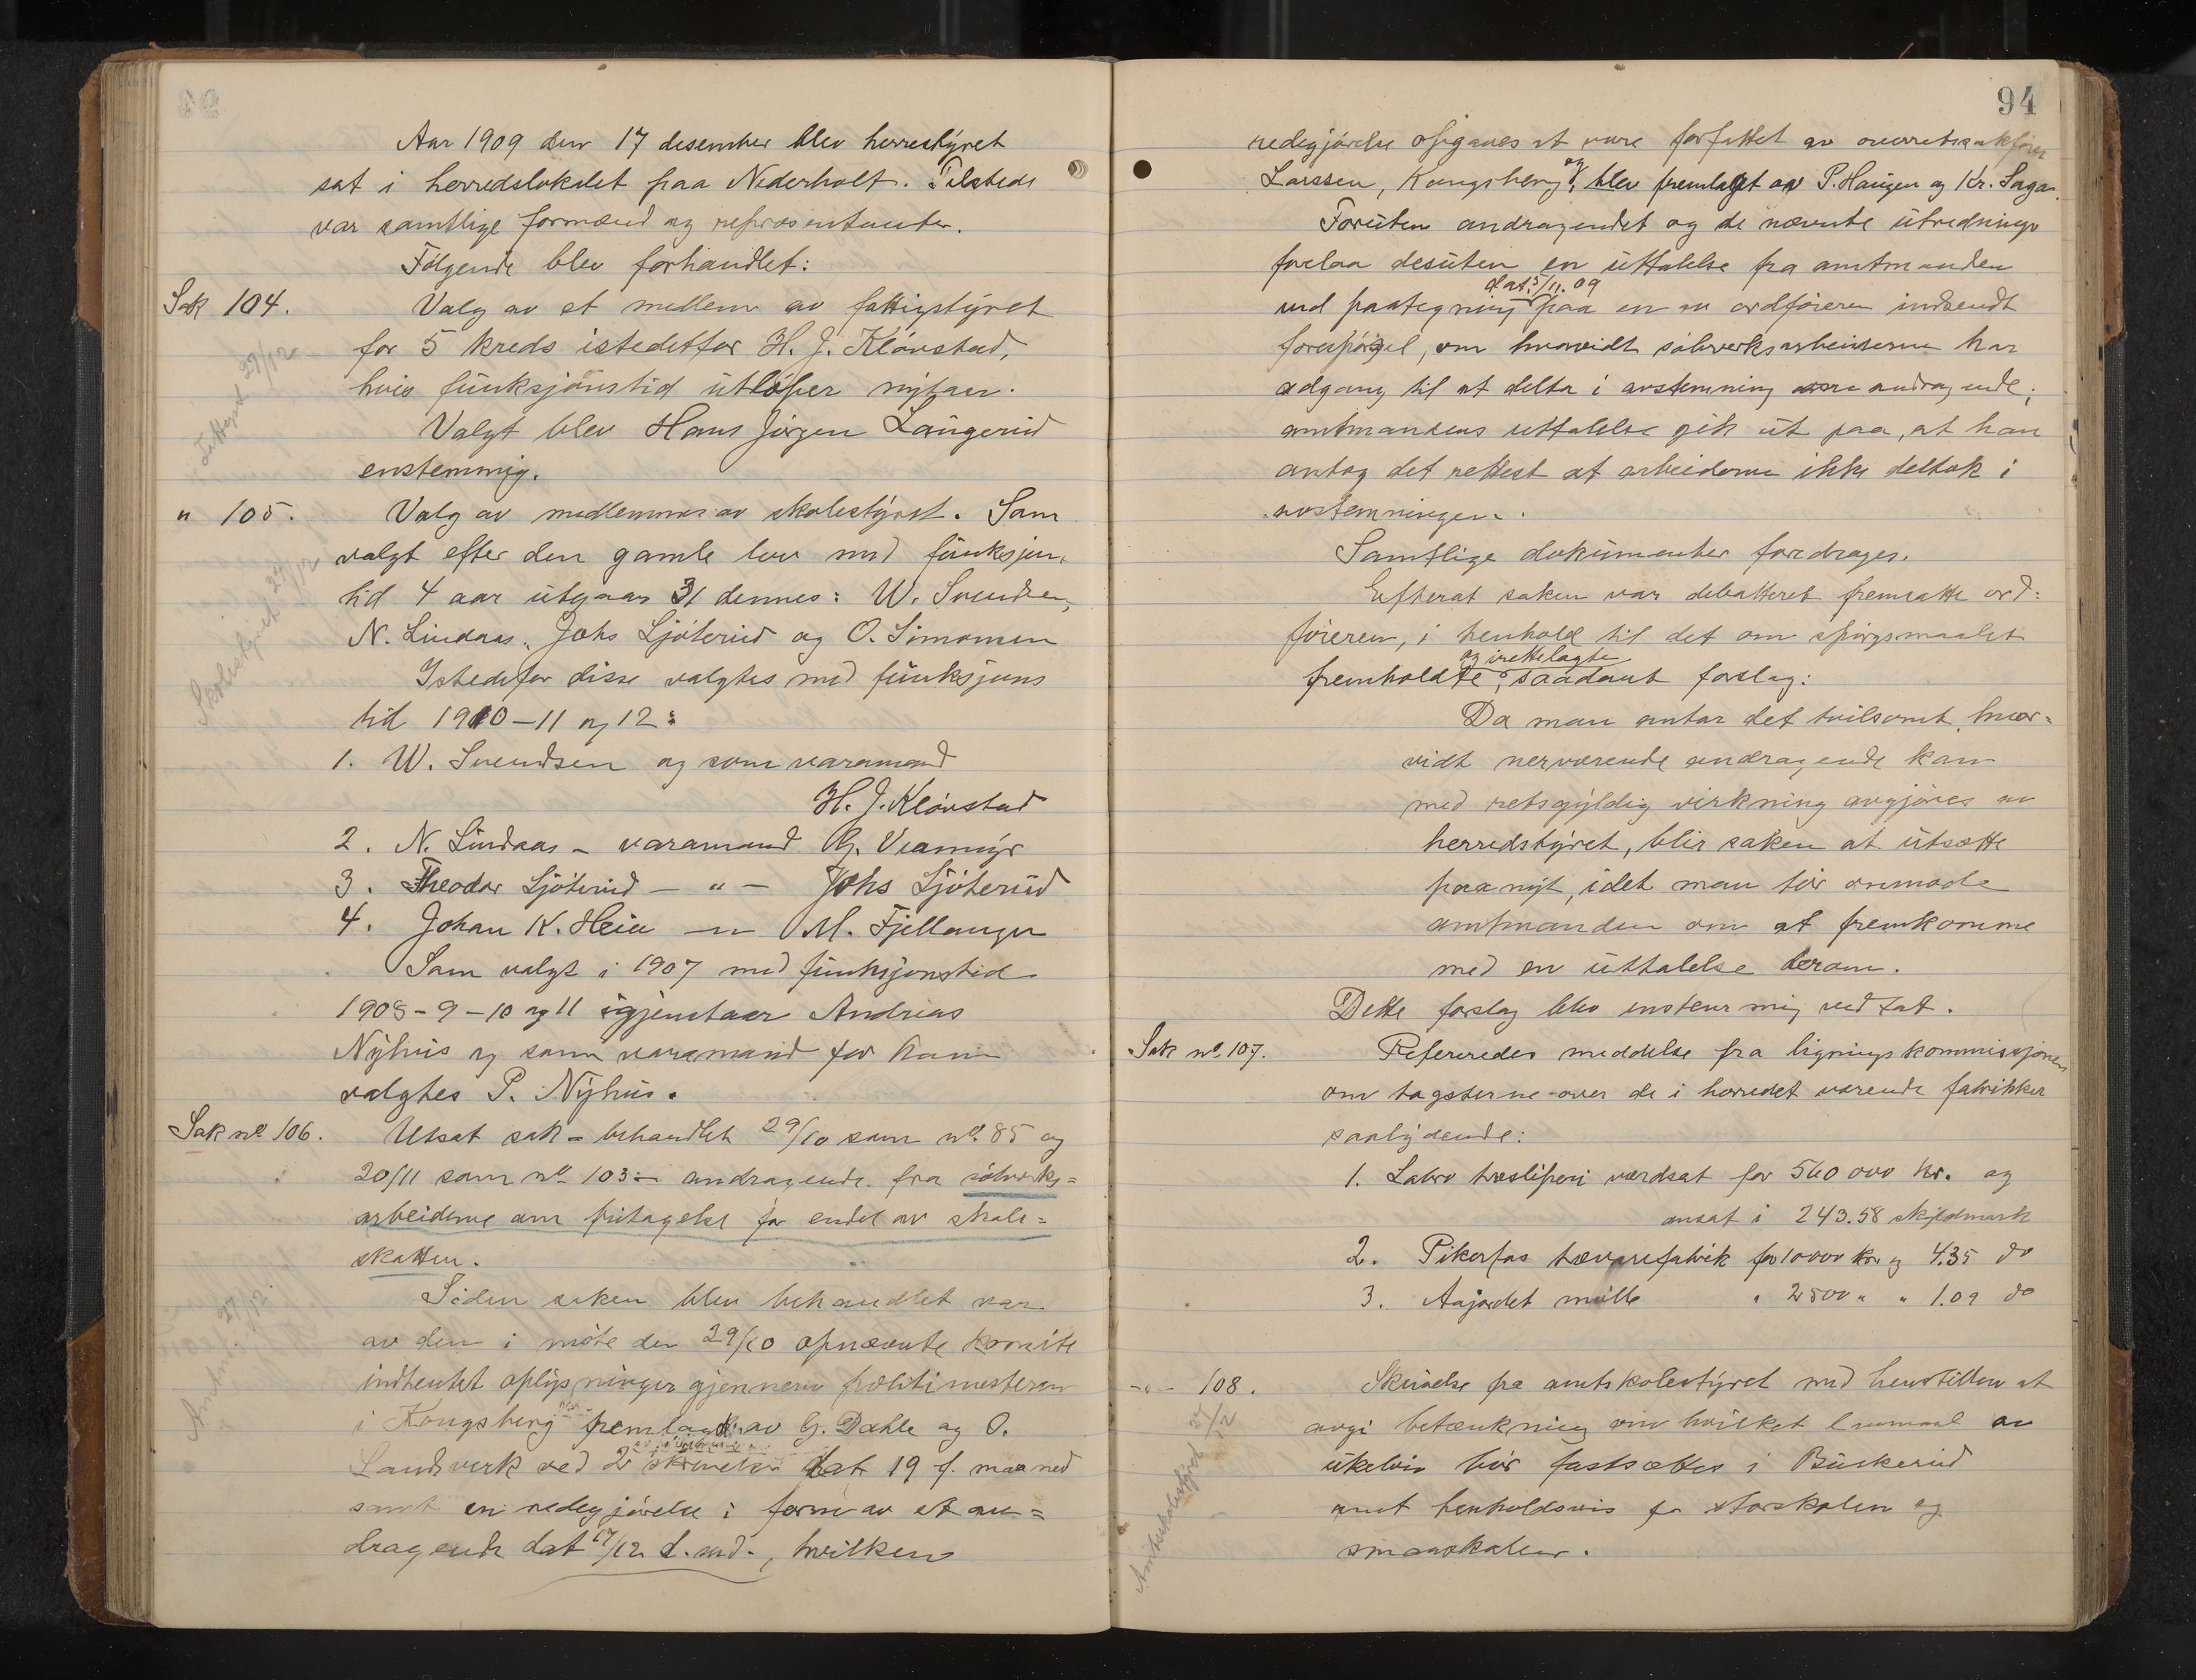 Aar 1909 den 17 desember blev herrestyret
sat i herredslokalet paa Nederholt. Tilstede
var samtlige formænd og repræsentanter.
Følgende blev forhandlet:
Sak 104. Valg av et medlem av fattigstyret
for 5 kreds istedetfor H. J. Kløvstad,
hvis funksjonstid utløper nytaar.
Fattigst 27/12
Valgt blev Hans Jørgen Langerud
enstemmig.
" 105. Valg av medlemmer av skolestyret. Som
valgt efter den gamle lov med funksjons
tid 4 aar utgaar 31 dennes: W. Svendsen,
N. Lindaas, Johs Ljøterud og O. Simonsen
Skolestyret 27/12
Istedetfor disse valgtes med funksjons
tid 1910-11 og 12:
1. W. Svendsen og som varamand
H. J. Kløvstad
2. N. Lindaas - varamand G. Viamyr
3. Theodor Ljøterud - " - Johs Ljøterud
4. Johan K. Heia - " - M. Fjellanger
Som valgt i 1907 med funksjonstid
1908-9-10 og 11 igjenstaar Andreas
Nyhus og som varamand for ham
valgtes P. Nyhus.
Sak no 106. Utsat sak - behandlet 29/10 som no. 85 og
20/11 som no 103 - andragende fra sølvverks=
arbeiderne om fritagelse for endel av skole=
skatten.
Siden saken blev behandlet var
av den i møte den 29/10 opnævnte komite
indhentet oplysninger gjennem politimesteren
27/12.
i Kongsberg fremlagt av G. Dahle og O.
Landsverk ved 2 skrivelser dat 19 f. maaned
samt en redegjørelse i form av et an=
dragende dat 17/12 d. md., hvilken
94
redegjørelse opgaves at være forfattet av overretssakfører
Larssen, Kongsberg, og blev fremlagt av P. Haugen og Kr. Saga.
Foruten andragendet og de nævnte utredninger
forelaa desuten en uttalelse fra amtmanden
dat. 5/11.09
ved paategning paa en av ordføreren indsendt
forespørgsel, om hvorvidt sølvverksarbeiderne har
adgang til at delta i avstemning andragende;
amtmandens uttalelse gik ut paa, at han
antog det rettest at arbeiderne ikke deltok i
avstemningen.
Samtlige dokumenter foredrages.
Efterat saken var debatteret fremsatte ord=
føreren, i henhold til det om spørgsmaalet
og irettelagte
fremholdte, saadant forslag:
Da man antar det tvilsomt hvor=
vidt nerværende andragende kan
med retsgyldig virkning avgjøres av
herredstyret, blir saken at utsætte
paa nyt, idet man tør anmode
amtmanden om at fremkomme
med en uttalelse derom.
Dette forslag blev enstemmig vedtat.
Sak no. 107. Refereredes meddelse fra ligningskommissjonen
om tagsterne over de i herredet værende fabrikker
saalydende:
1. Labro træsliperi værdsat for 560000 kr. og
ansat i 243.58 skyldmark
2. Pikerfos trævarefabrik for 10000 kr og 4.35 do
3. Aajordet mølle " 2500 " " 1.09 do
- " - 108. Skrivelse fra amtskolestyret med henstillen at
avgi betænkning om hvilket lønmaal av
ukeløn bør fastsættes i Buskerud
amt henholdsvis for storskolen og
smaaskolen.
Amtsskolestyret 27/12